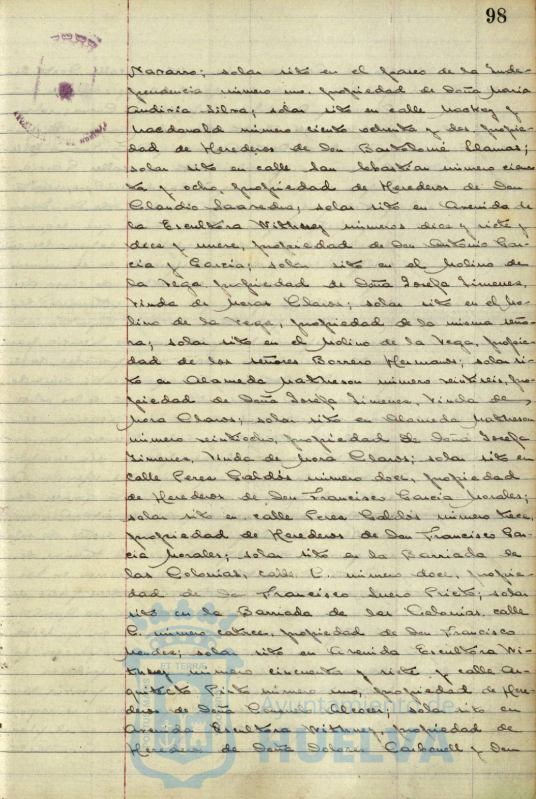 98
Navarro; solar sito en el paseo de la Inde-
pendencia número uno, propiedad de Doña María
Silva; solar sito en calle Mackay y
Macdonald número ciento ochenta y dos, propie-
dad de Herederos de Don Bartolomé Llamas;
solar sito en calle San Sebastian número cien-
to y ocho, propiedad de Herederos de Don
Claudio Saavedra; solar sito en Avenida de
la Escultora Withney números diez y siete y
diez y nueve, propiedad de Don Antonio Gar-
cía y García; solar sito en el Molino de
la Vega, propiedad de Doña Josefa Jimenez,
Viuda de Mora Claros; solar sito en el Mo-
lino de la Vega, propiedad de la misma seño-
ra; solar sito en el Molino de la Vega, propie-
dad de los señores Borrero Hermanos; solar si-
to en Alameda Matheson número veintiseis, pro-
piedad de Doña Josefa Jimenez, Viuda de
Mora Claros; solar sito en Alameda Matheson
número veintiocho, propiedad de Doña Josefa
Jimenez, Viuda de Mora Claros; solar sito en
calle Perez Galdós número doce, propiedad
de Herederos de Don Francisco García Morales;
solar sito en calle Perez Galdós número trece,
propiedad de Herederos de Don Francisco Gar-
cía Morales; solar sito en la Barriada de
las Colonias, calle C. número doce, propie-
dad de Don Francisco Suero Prieto; solar
sito en la Barriada de las Colonias, calle
C. número catorce, propiedad de Don Francisco
Mendez; solar sito en Avenida Escultora Wi-
thney número cincuenta y siete y calle Ar-
quitecto Pinto número uno, propiedad de Here-
deros de Doña Alcocer; solar sito en
Avenida Escultora Withney, propiedad de
Herederos de Doña Dolores Carbonell y Don
ET TERRA
Ayuntamiento de
HUELVA